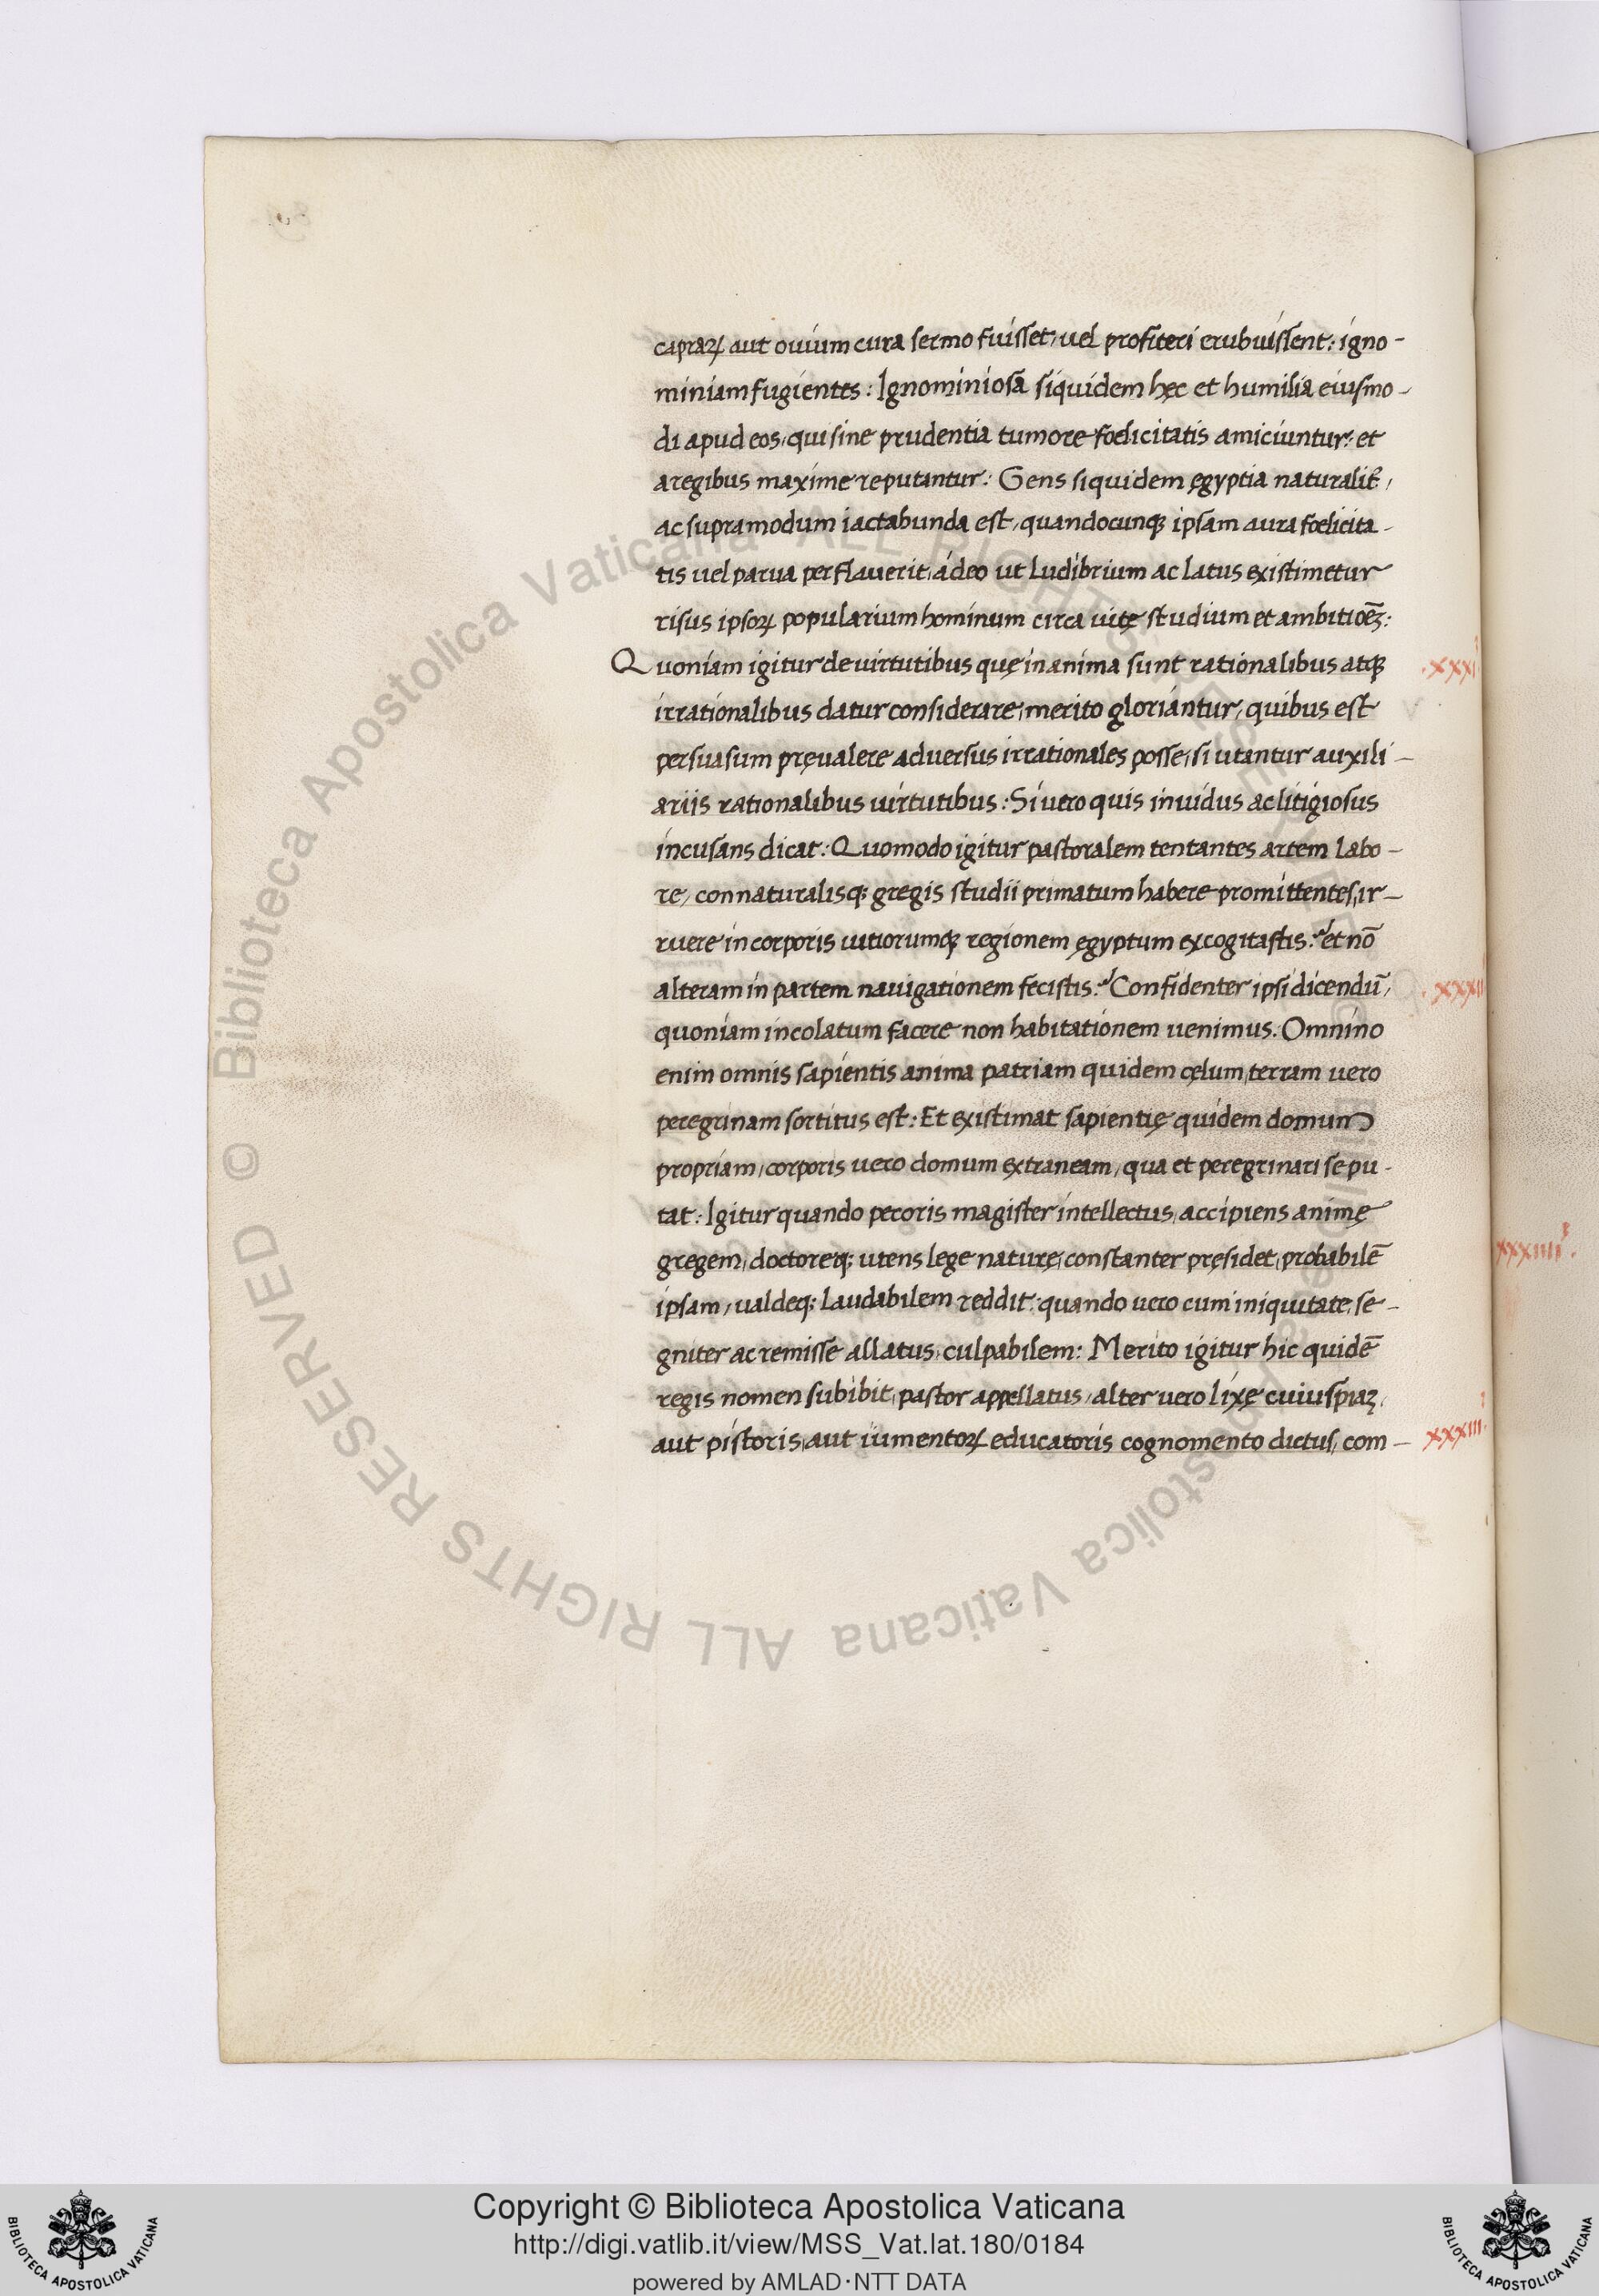 capraꝝ aut ouium cura sermo fuisset, uel profiteri erubuissent: igno-
miniam fugientes: Ignominiosa siquidem hęc et humilia eiusmo-
di apud eos, qui sine prudentia tumore foelicitatis amiciuntur: et
a regibus maxime reputantur: Gens siquidem ęgyptia naturalit̃,
ac supramodum iactabunda est, quandocunqꝫ ipsam aura foelicita-
tis uel parua perflauerit, ádeo ut ludibrium ac latus existimetur
risus ipsoꝝ popularium hominum circa uitę studium et ambitioẽꝫ:
Quoniam igitur de uirtutibus quę in anima sunt rationalibus atqꝫ .xxxi
irrationalibus datur considerare, merito gloriantur, quibus est
persuasum pręualere aduersus irrationales posse, si utantur auxili-
ariis rationalibus uirtutibus: Si uero quis inuidus ac litigiosus
incusans dicat: Quomodo igitur pastoralem tentantes artem labo-
re, connaturalisqꝫ gregis studii primatum habere promittentes, ir-
ruere in corporis uitiorumqꝫ regionem ęgyptum excogitastis? et nõ
alteram in partem nauigationem fecistis? Confidenter ipsi dicendũ, .xxxii
quoniam incolatum facere non habitationem uenimus. Omnino
enim omnis sapientis anima patriam quidem cęlum, terram uero
peregrinam sortitus est: Et existimat sapientię quidem domum
propriam, corporis uero domum extraneam, qua et peregrinari se pu-
tat: Igitur quando pecoris magister intellectus, accipiens animę
gregem, doctoreqꝫ utens lege naturę, constanter pręsidet, probabilẽ xxxiiii.
ipsam, ualdeqꝫ laudabilem reddit: quando uero cum iniquitate, se-
gniter ac remisse allatus, culpabilem: Merito igitur hic quidẽ
regis nomen subibit, pastor appellatus, alter uero lixę cuiuspiaꝫ,
aut pistoris, aut iumentoꝝ educatoris cognomento dictus, com- xxxiii.
© Biblioteca Apostolica Vaticana ALL RIGHTS RESERVED © Biblioteca Apostolica Vaticana ALL RIGHTS RESERVED
BIBLIOTECA APOSTOLICA VATICANA
Copyright © Biblioteca Apostolica Vaticana
http://digi.vatlib.it/view/MSS_Vat.lat.180/0184
powered by AMLAD·NTT DATA
BIBLIOTECA APOSTOLICA VATICANA